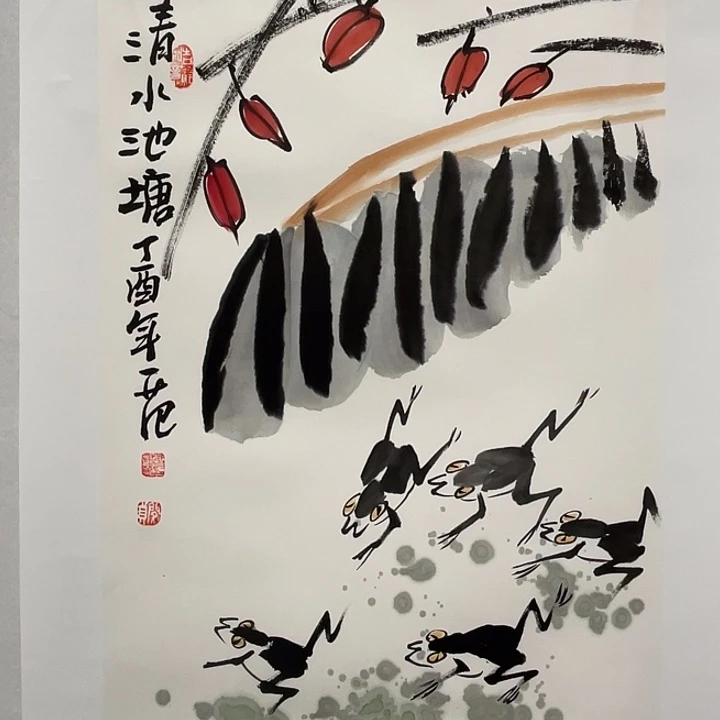 清水池塘丁酉年